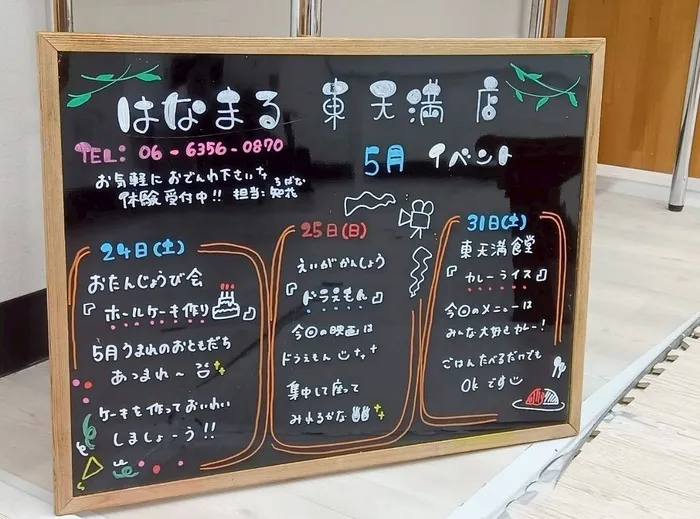 はなまる 東天満店
TEL: 06-6356-0870
5月 イベント
お気軽におでんわ下さい
体験受付中!! 担当:
24日(土)
おたんじょうび会
『ホールケーキ作り』
5月うまれのおともだち
あつまれ〜
ケーキを作っておいわい
しましょーう!!
25日(日)
えいがかんしょう
『ドラえもん』
今回の映画は
ドラえもん
集中して座って
みれるかな
31日(土)
東天満食堂
『カレーライス』
今回のメニューは
みんな大好きカレー!
ごはんたべるだけでも
OKです